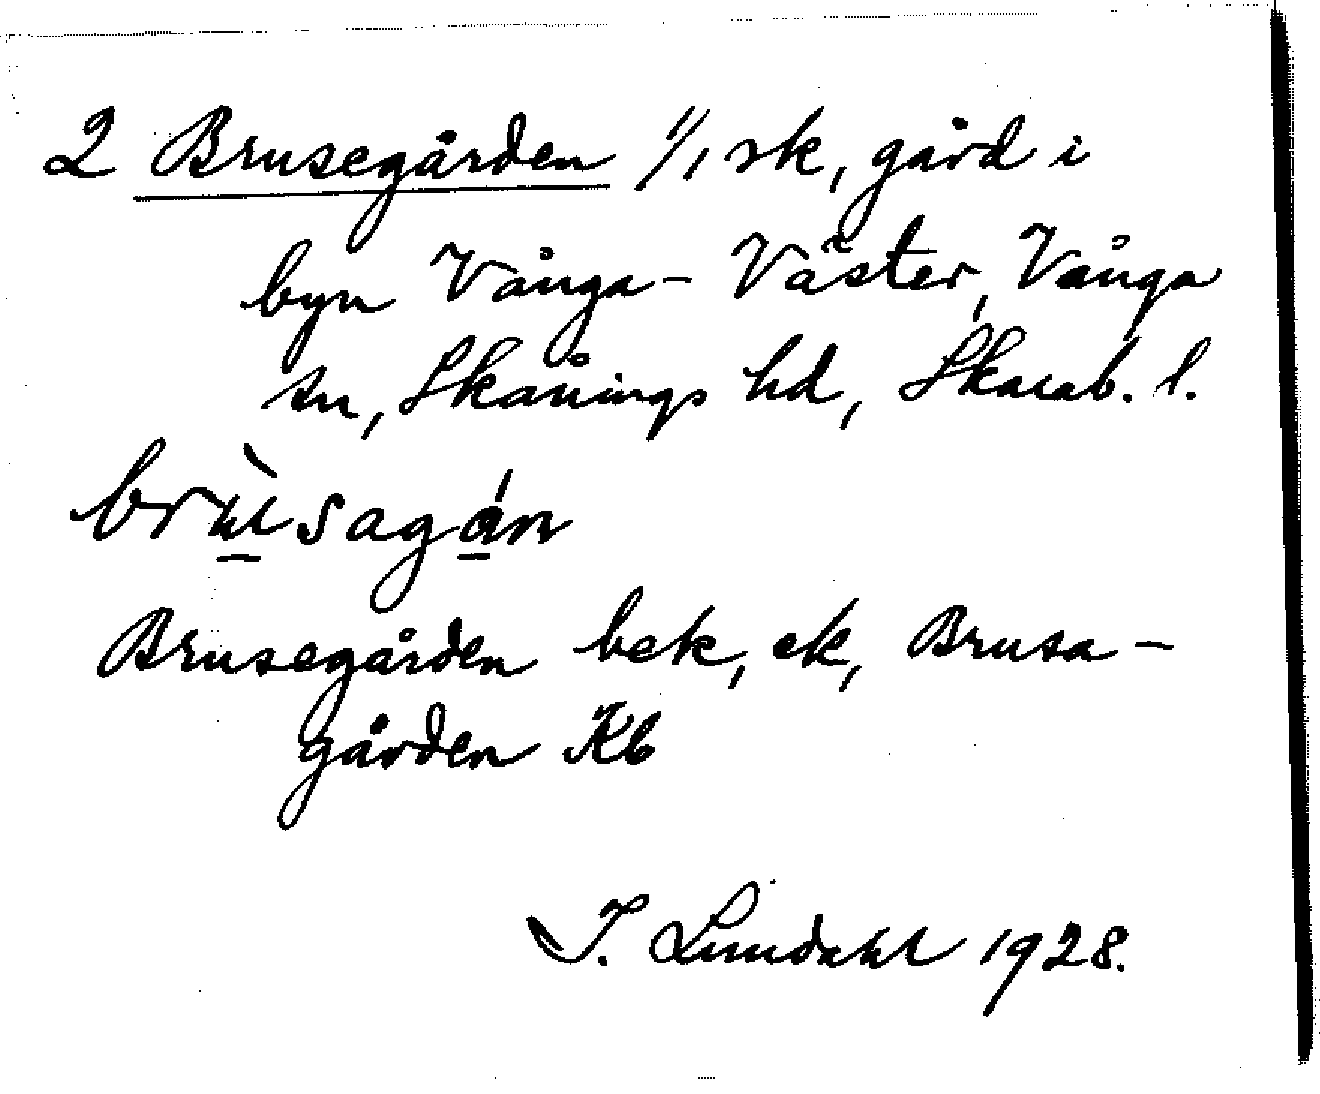 2 Brusegården 1/1 sk, gård i
byn Vånga-Väster, Vånga
sn, Skånings hd, Skarab. l.
brùsagán
Brusegården bek, ek, Brusa-
gården Kb
I. Lundahl 1928.